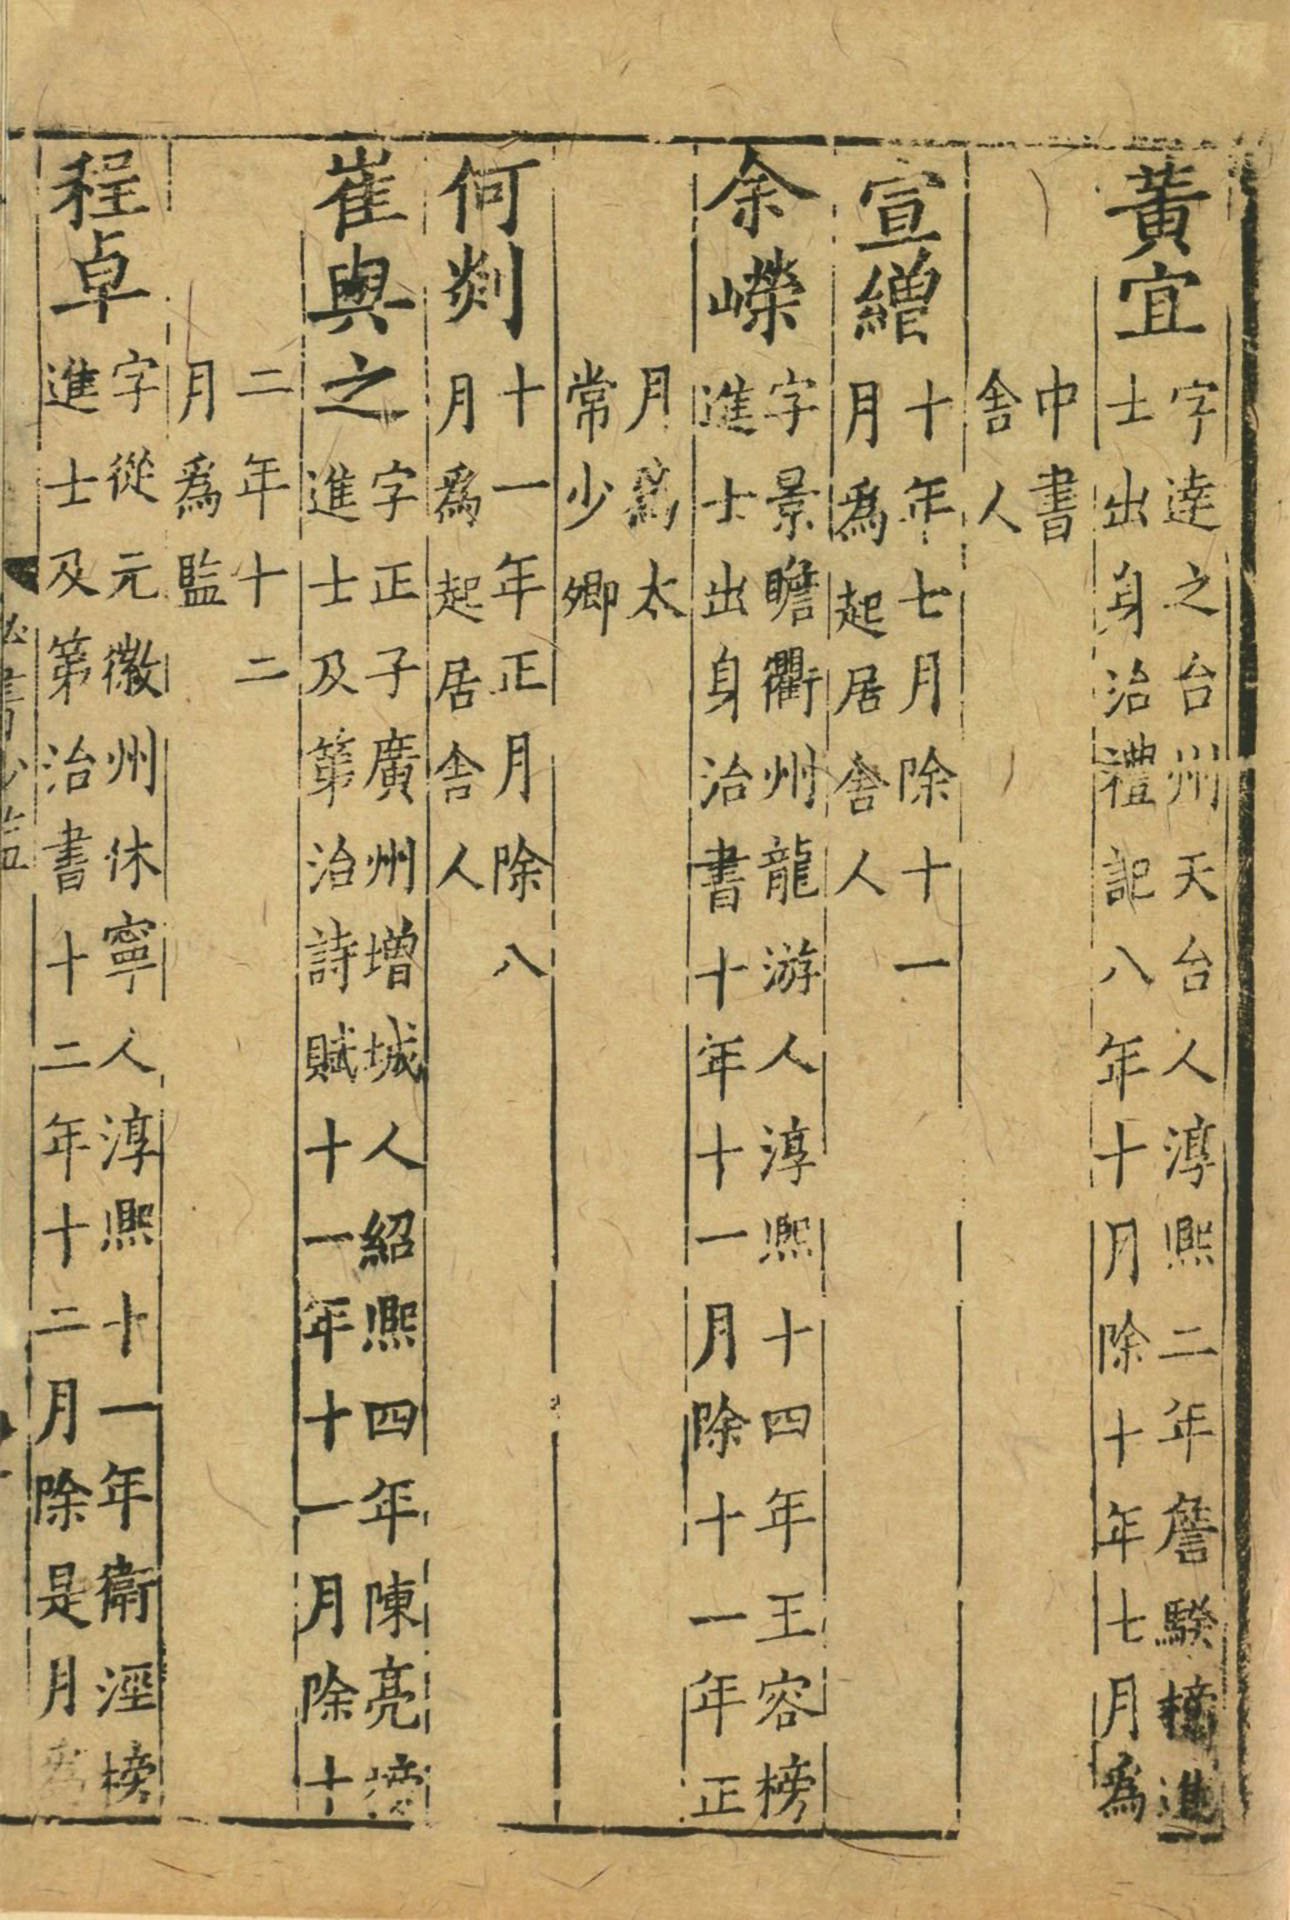 黃宜
字達之台州天台人淳熙二年詹騤榜進
士出身治禮記八年十月除十年七月爲
中書
舍人
宣繒
十年七月除十一
月爲起居舍人
余嶸
字景瞻衢州龍游人淳熙十四年王容榜
進士出身治書十年十一月除十一年正
月爲太
常少卿
何剡
十一年正月除八
月爲起居舍人
崔與之
字正子廣州增城人紹熙四年陳亮榜
進士及第治詩賦十一年十一月除十
二年十二
月爲監
程卓
字從元徽州休寧人淳熙十一年衛涇榜
進士及第治書十二年十二月除是月爲
秘書少監